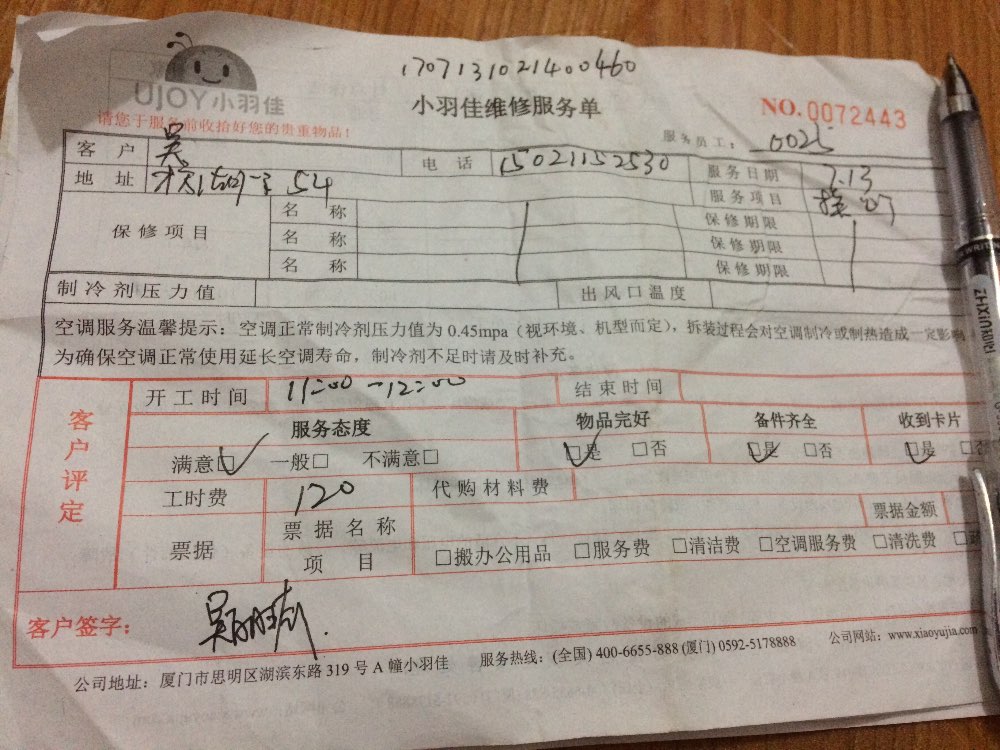 1707131021400460
UJOY小羽佳
小羽佳维修服务单
NO.0072443
请您于服务前收拾好您的贵重物品!
服务员工: 0025
客户 吴 电话 15021152530 服务日期 7.13
地址 54 服务项目
保修项目 名称 保修期限
名称 保修期限
名称 保修期限
制冷剂压力值 出风口温度
空调服务温馨提示:空调正常制冷剂压力值为 0.45mpa(视环境、机型而定),拆装过程会对空调制冷或制热造成一定影响
为确保空调正常使用延长空调寿命,制冷剂不足时请及时补充。
客户评定
开工时间 11:00-12:00 结束时间
服务态度 物品完好 备件齐全 收到卡片
满意☑ 一般□ 不满意□ ☑是 □否 ☑是 □否 ☑是 □否
工时费 120 代购材料费
票据 票据名称 票据金额
项目 □搬办公用品 □服务费 □清洁费 □空调服务费 □清洗费
客户签字:
公司地址:厦门市思明区湖滨东路 319 号 A 幢小羽佳 服务热线:(全国) 400-6655-888 (厦门) 0592-5178888 公司网站:www.xiaoyujia.com
ZHIXIN